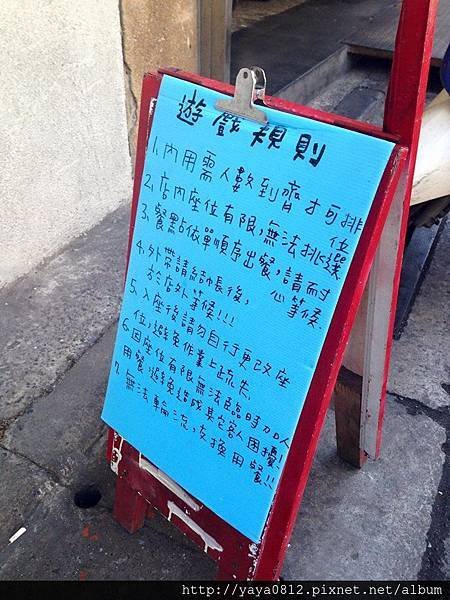 遊戲規則
1. 內用需人數到齊才可排位
2. 店內座位有限,無法挑選
3. 餐點依單順序出餐,請耐
心等候
4. 外帶請結帳後,
於店外等候!!!
5. 入座後請勿自行更改座
位,避免作業上疏失
6. 因座位有限無法臨時加人
用餐,避免造成其它客人困擾!
7. 無法輪流,交換用餐!!
http://yaya0812.pixnet.net/album